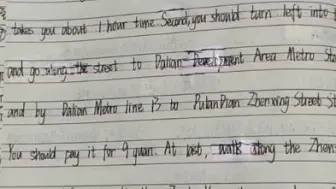 takes you about 1 hour time. Second, you should turn left into
and go along the street to Dalian Development Area Metro Sta
and by Dalian Metro line 13 to PulanDian Zhenxing Street St
You should pay it for 9 yuan. At last, walk along the Zhen